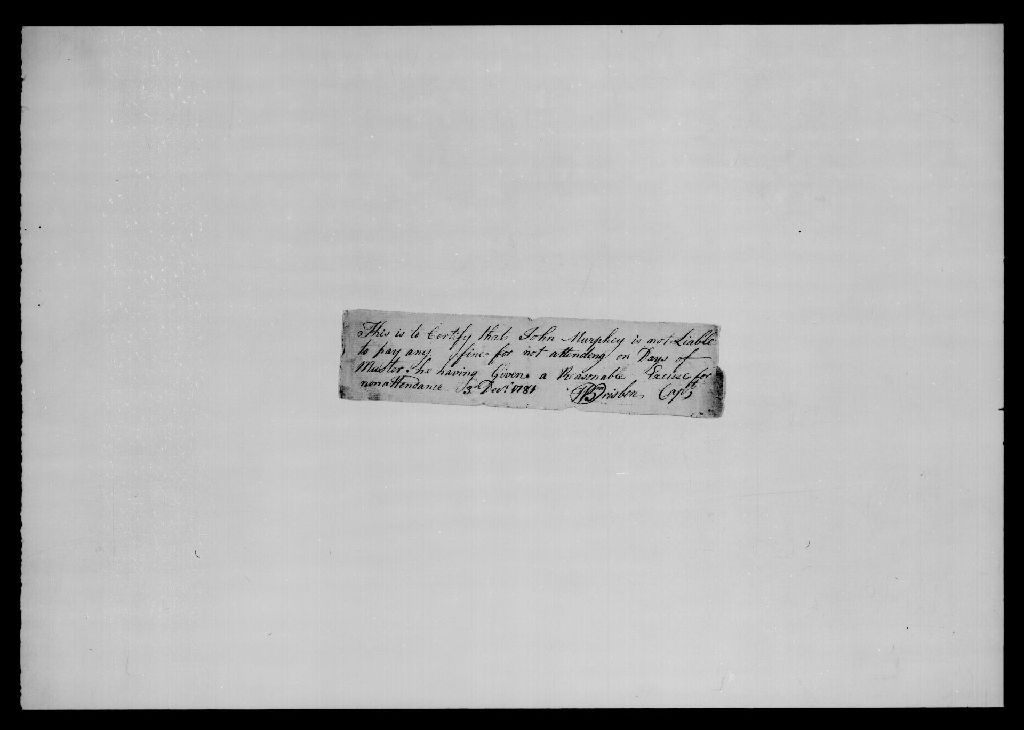 This is to Certify that John Murphey is not Liable
to pay any ffine for not attending on Days of
Muster he having Given a Reasonable Excuse for
nonattendance 3 Decr. 1781 Brisbon Capt